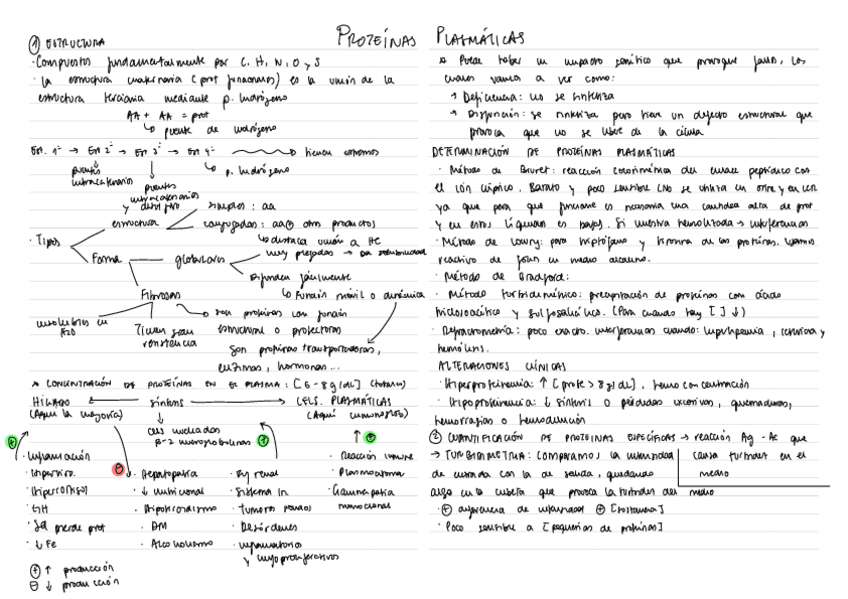 PROTEÍNAS PLASMÁTICAS
① ESTRUCTURA
· Compuestos fundamentalmente por C, H, N, O y S
· La estructura cuaternaria (prot funcionales) es la unión de la
estructura terciaria mediante p. hidrógeno
AA + AA = prot
↳ puente de hidrógeno
Est. 1ª → Est 2ª → Est 3ª → Est 4ª → tienen
puentes
intracatenarios
↳ p. hidrógeno
puentes
intracatenarios
y
· Tipos
estructura
simples: aa
conjugadas: aa ⊕ otros productos
↳ destaca unión a HC
Forma
globulares
muy plegadas → solubilidad
Difunden fácilmente
↳ Función móvil o dinámica
Fibrosas
insolubles en
H2O
Tienen gran
resistencia
son proteínas con función
estructural o protectora
Son proteínas transportadoras,
enzimas, hormonas...
* CONCENTRACIÓN DE PROTEÍNAS EN EL PLASMA: [6-8 g/dL] (totales)
HÍGADO ← síntesis → CELS. PLASMÁTICAS
(Aquí la mayoría)
(Aquí inmunoglob)
cels nucleadas
β-2 microglobulinas ⊕
⊕
⊖
⊕
· Inflamación
· GH
· Sd pierde prot
· ↓ Fe
· Hepatopatía
· ↓ nutricional
· Hipotiroidismo
· DM
· Alcoholismo
· renal
· Sistema In
· Tumores
· Desórdenes
· inflamatorios
y linfoproliferativos
· Reacción inmune
· Plasmocitoma
· Gammapatía
monoclonal
⊕ ↑ producción
⊖ ↓ producción
* Puede haber un impacto genético que provoque fallos, los
cuales vamos a ver como:
→ Deficiencia: no se sintetiza
→ Disfunción: se sintetiza pero tiene un defecto estructural que
provoca que no se libere de la célula
DETERMINACIÓN DE PROTEÍNAS PLASMÁTICAS
· Método de Biuret: reacción colorimétrica del enlace peptídico con
el ión cúprico. Barato y poco sensible (No se utiliza en orina y en LCR
ya que para que funcione es necesaria una cantidad alta de prot
y en estos líquidos es bajas. Si muestra hemolizada → interferencias
· Método de Lowry: para triptófano y tirosina de las proteínas. Usamos
reactivo de folin en medio alcalino.
· Método de Bradford:
· Método turbidimétrico: precipitación de proteínas con ácido
tricloroacético y sulfosalicílico. (Para cuando hay [ ] ↓)
· Refractometría: poco exacto. interferencias cuando: hiperlipemia, ictericia y
hemólisis.
ALTERACIONES CLÍNICAS
· Hiperproteinemia: ↑ [prote > 8 g/dL], hemoconcentración
· Hipoproteinemia: ↓ síntesis o pérdidas excesivas, quemaduras,
hemorragias o hemodilución
② CUANTIFICACIÓN DE PROTEINAS ESPECÍFICAS → reacción Ag - Ac que
causa turbidez en el
medio
→ TURBIDIMETRIA: Comparamos la intensidad
de entrada con la de salida, quedando
algo en la cubeta que provoca la turbidez del medio
· ⊕ diferencia de intensidad ⊕ [sustancia]
· Poco sensible a [pequeñas de proteínas]